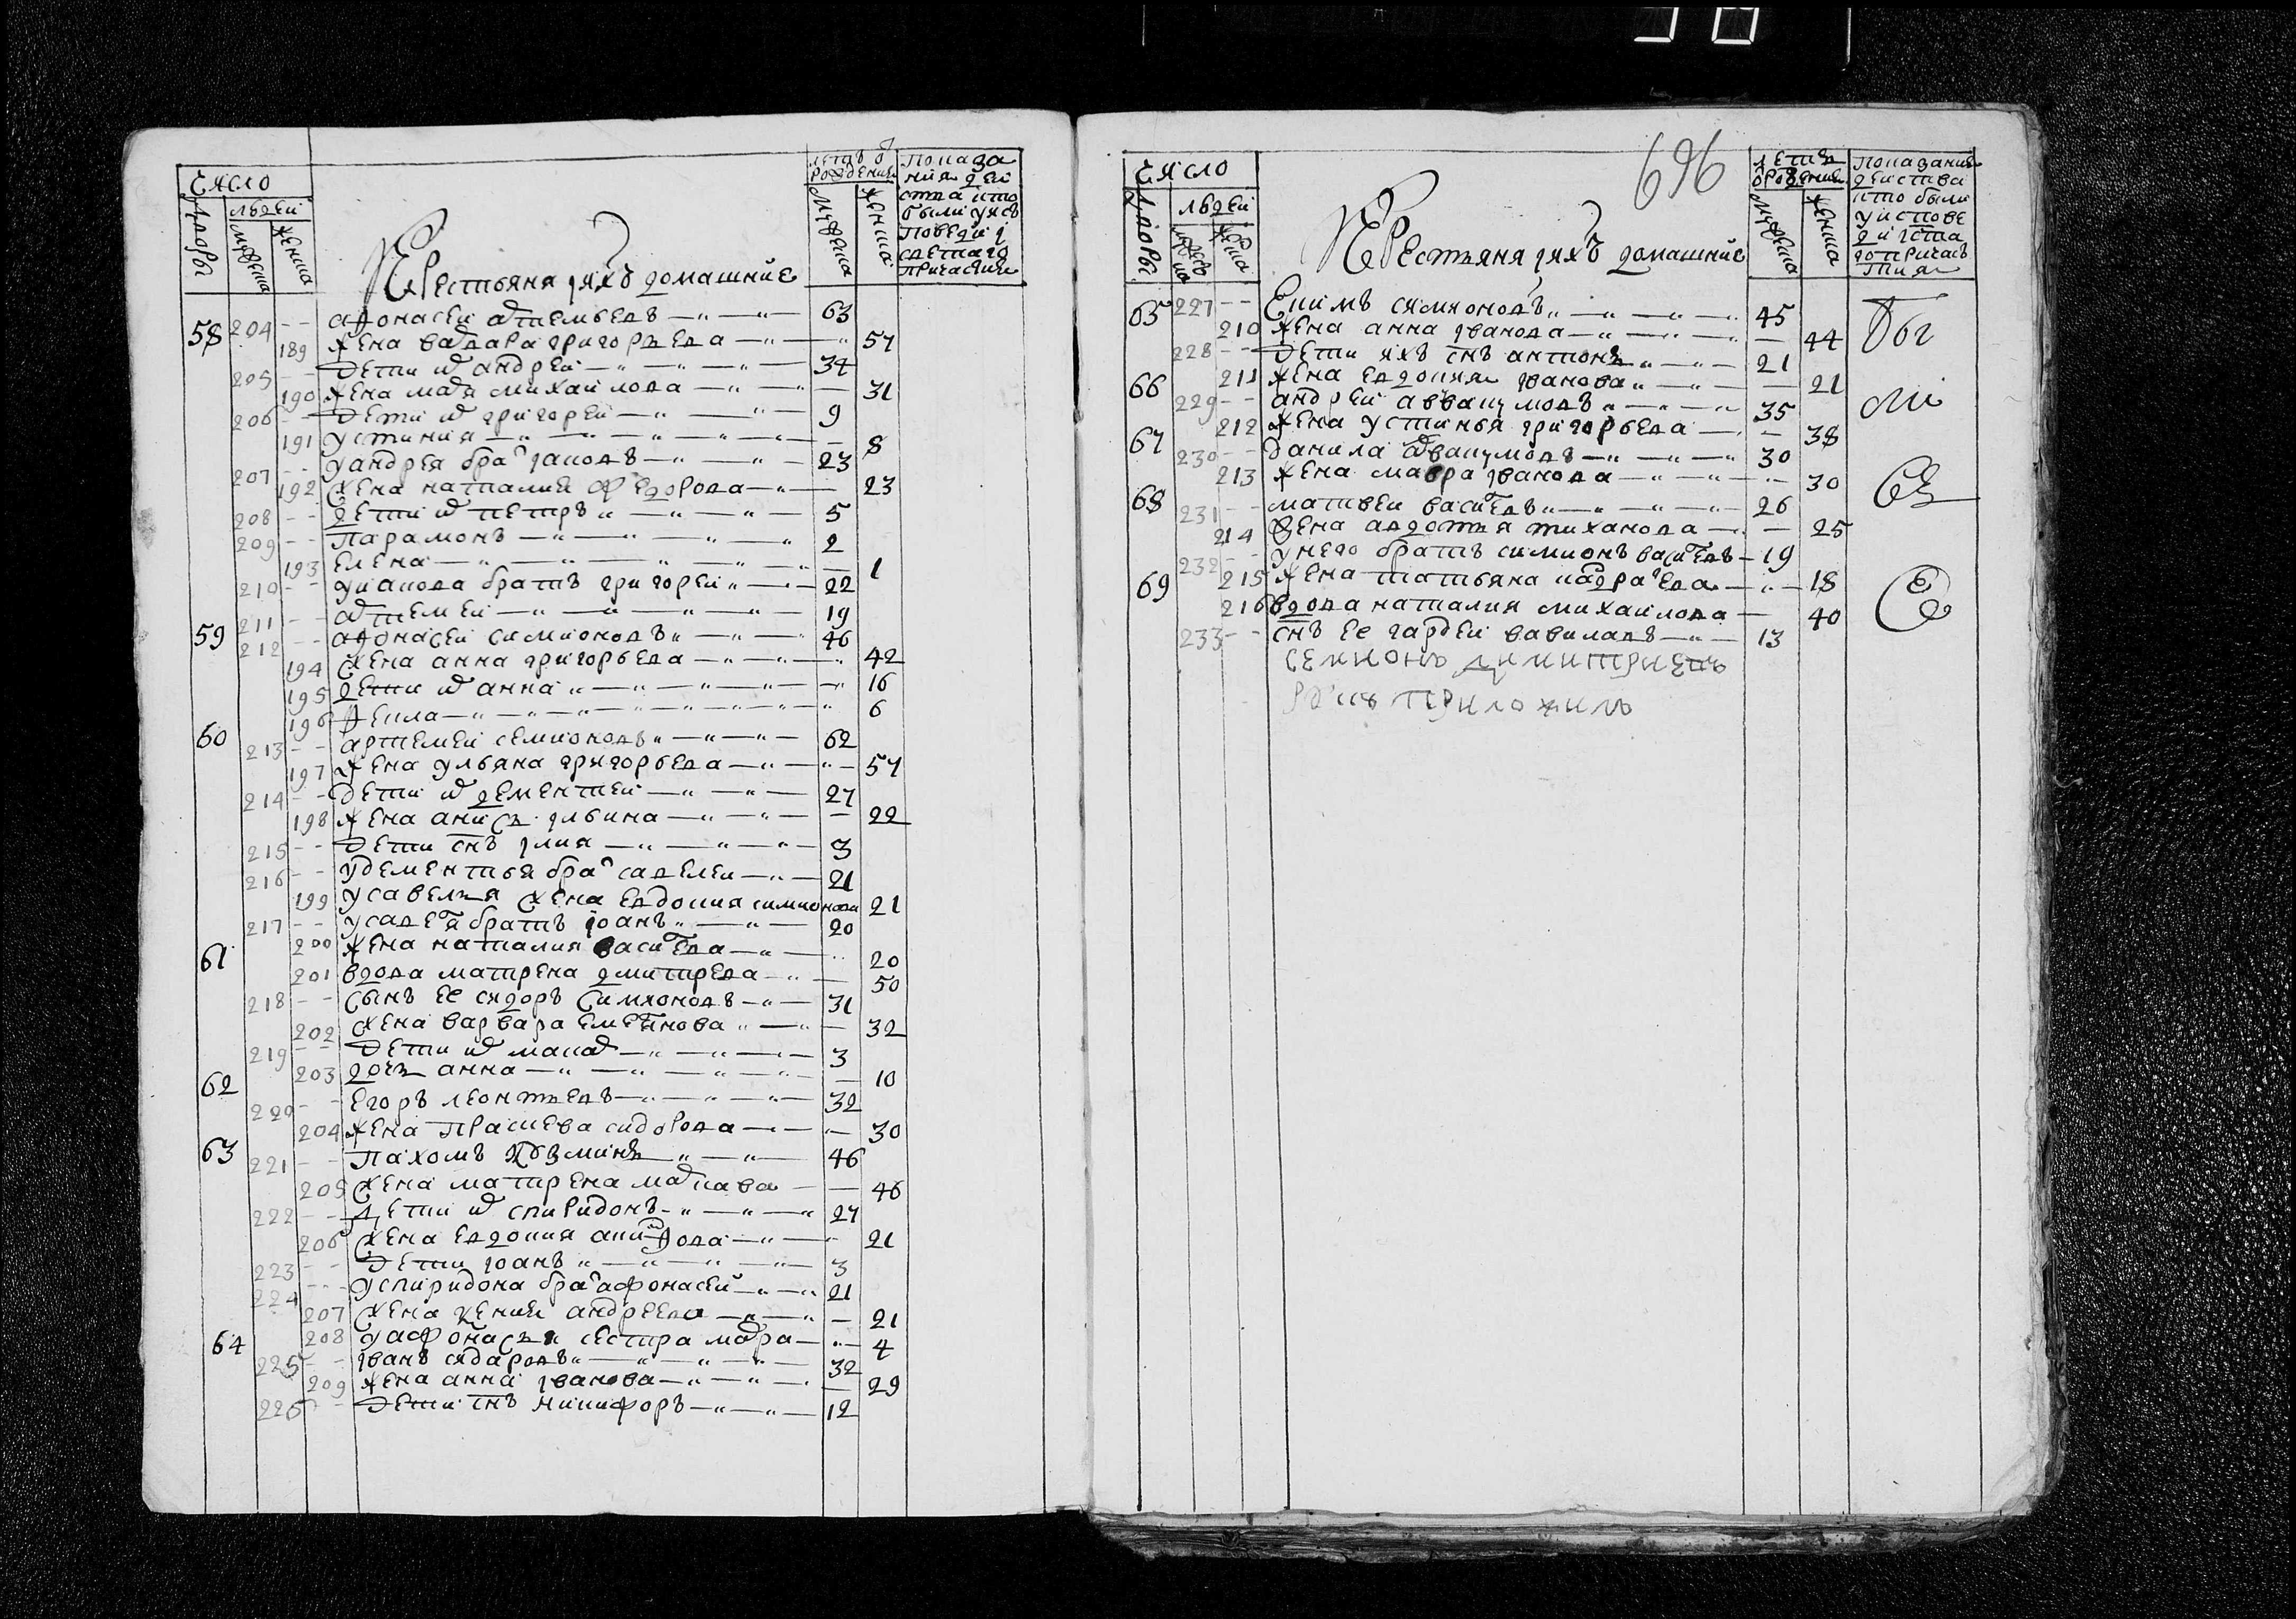 число
людей
дворы
мужеска
женска
крестьяня і ихъ домашние
летъ от рождения
мужеска
женска
показания деиства кто были у исповеди и святаго причастия
58 204 -- афонасеи артемьевъ 63
189 жена варвара григорьева 57
205 -- дети их андреи 34
190 жена марья михаилова 31
206 -- дети их григореи 9
191 устиния 8
207 -- у андрея братъ іаковъ 23
192 жена наталия федорова 23
208 -- дети их петръ 5
209 -- парамонъ 2
193 елена 1
210 -- у иакова братъ григореи 22
211 -- артемеи 19
59 212 -- афонасеи симионовъ 46
194 жена анна григорьева 42
195 дети их анна 16
196 фекла 6
60 213 -- артемеи семионовъ 62
197 жена ульяна григорьева 57
214 -- дети их дементеи 27
198 жена анисья ильина 22
215 -- дети снъ илия 3
216 -- у дементья братъ савелеи 21
199 у савелья жена евдокия симионова 21
217 -- у савелья братъ іоанъ 20
200 жена наталия васильева 20
61 201 вдова матрена дмитрева 50
218 -- сынъ ее сидоръ симионовъ 31
202 жена варвара емельянова 32
219 -- дети их макар 3
203 дочь анна 10
62 220 -- егоръ леонтьевъ 32
204 жена прасковья сидорова 30
63 221 -- пахомъ козминъ 46
205 жена матрена маркава 46
222 -- дети их спиридонъ 27
206 жена евдокия 21
223 -- дети іоанъ 3
224 -- у спиридона братъ афонасеи 21
207 жена ксения андреева 21
208 у афонасья сестра мавра 4
64 225 -- іванъ сидаровъ 32
209 жена анна іванова 29
226 -- дети снъ никифоръ 12
696
число
людей
дворы
мужеска
женска
крестьяня і ихъ домашние
летъ от рождения
мужеска
женска
показания деиства кто были у исповеди и святаго причастия
65 227 -- екимъ симионовъ 45
210 жена анна іванова 44
228 -- дети ихъ снъ антонъ 21
211 жена евдокия іванова 21
66 229 -- андреи аввакумовъ 35
212 жена устинья григорьева 38
67 230 -- данила аввакумовъ 30
213 жена мавра іванова 30
68 231 -- матвеи васильевъ 26
214 жена авдотья тиханова 25
232 -- у него братъ симионъ васильевъ 19
215 жена татьяна кондратьева 18
69 216 вдова наталия михаилова 40
233 -- снъ ее гордеи вавиловъ 13
семионъ димитриевъ
руку приложилъ